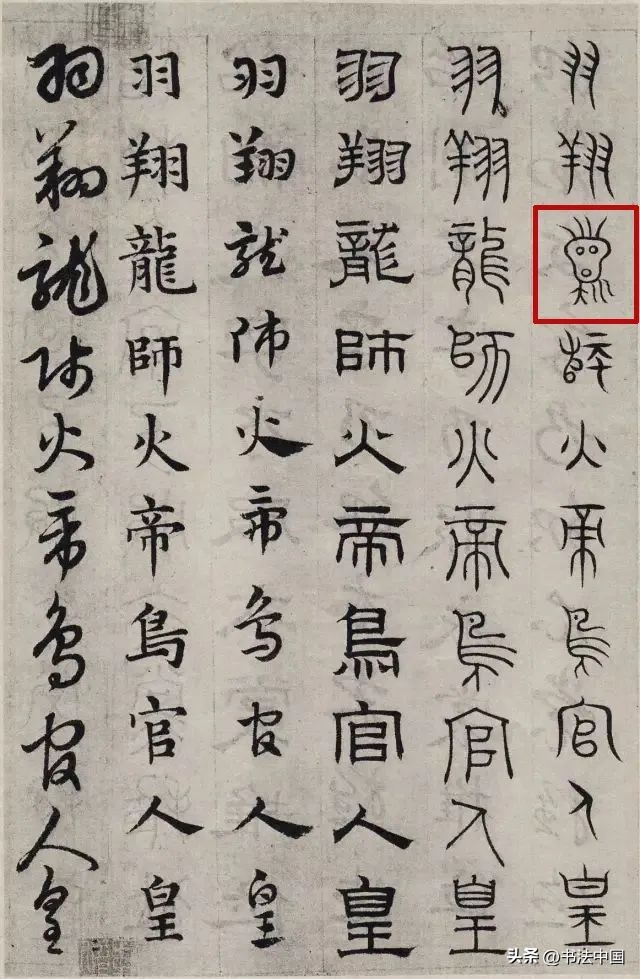 羽翔龍師火帝鳥官人皇
羽翔龍師火帝鳥官人皇
羽翔龍師火帝鳥官人皇
羽翔龍師火帝鳥官人皇
羽翔龍師火帝鳥官人皇
羽翔龍師火帝鳥官人皇
头条 @书法中国